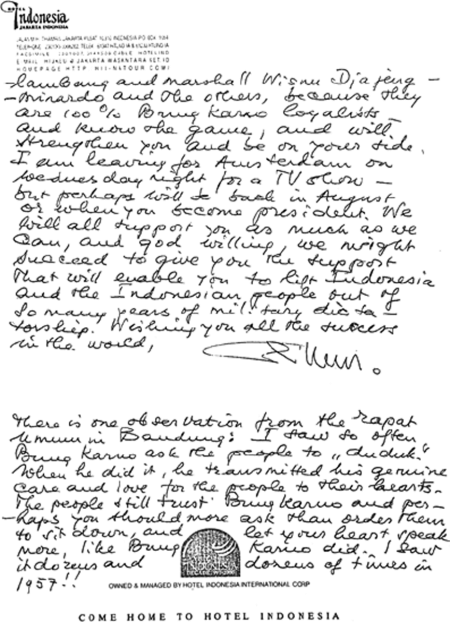 Hotel
Indonesia
JAKARTA INDONESIA
HOMEPAGE HTTP
-lambang and Marshall Wisnu Djajeng-
-minardo and the others, because they
are 100% Bung Karno loyalists
and know the game, and will
strengthen you and be on your side.
I am leaving for Amsterdam on
wednesday night for a TV show —
but perhaps will be back in August
or when you become president. We
will all support you as much as we
can, and god willing, we might
succeed to give you the support
that will enable you to lift Indonesia
and the Indonesian people out of
so many years of military dicta-
torship. Wishing you all the success
in the world,
There is one observation from the rapat
Umum in Bandung: I saw so often
Bung Karno ask the people to „duduk."
When he did it, he transmitted his genuine
care and love for the people to their hearts.
The people still trust Bung Karno and per-
-haps you should more ask than order them
to sit down, and let your heart speak
more, like Bung Karno did. I saw
it dozens and dozens of times in
1957!!
OWNED & MANAGED BY HOTEL INDONESIA INTERNATIONAL CORP
COME HOME TO HOTEL INDONESIA